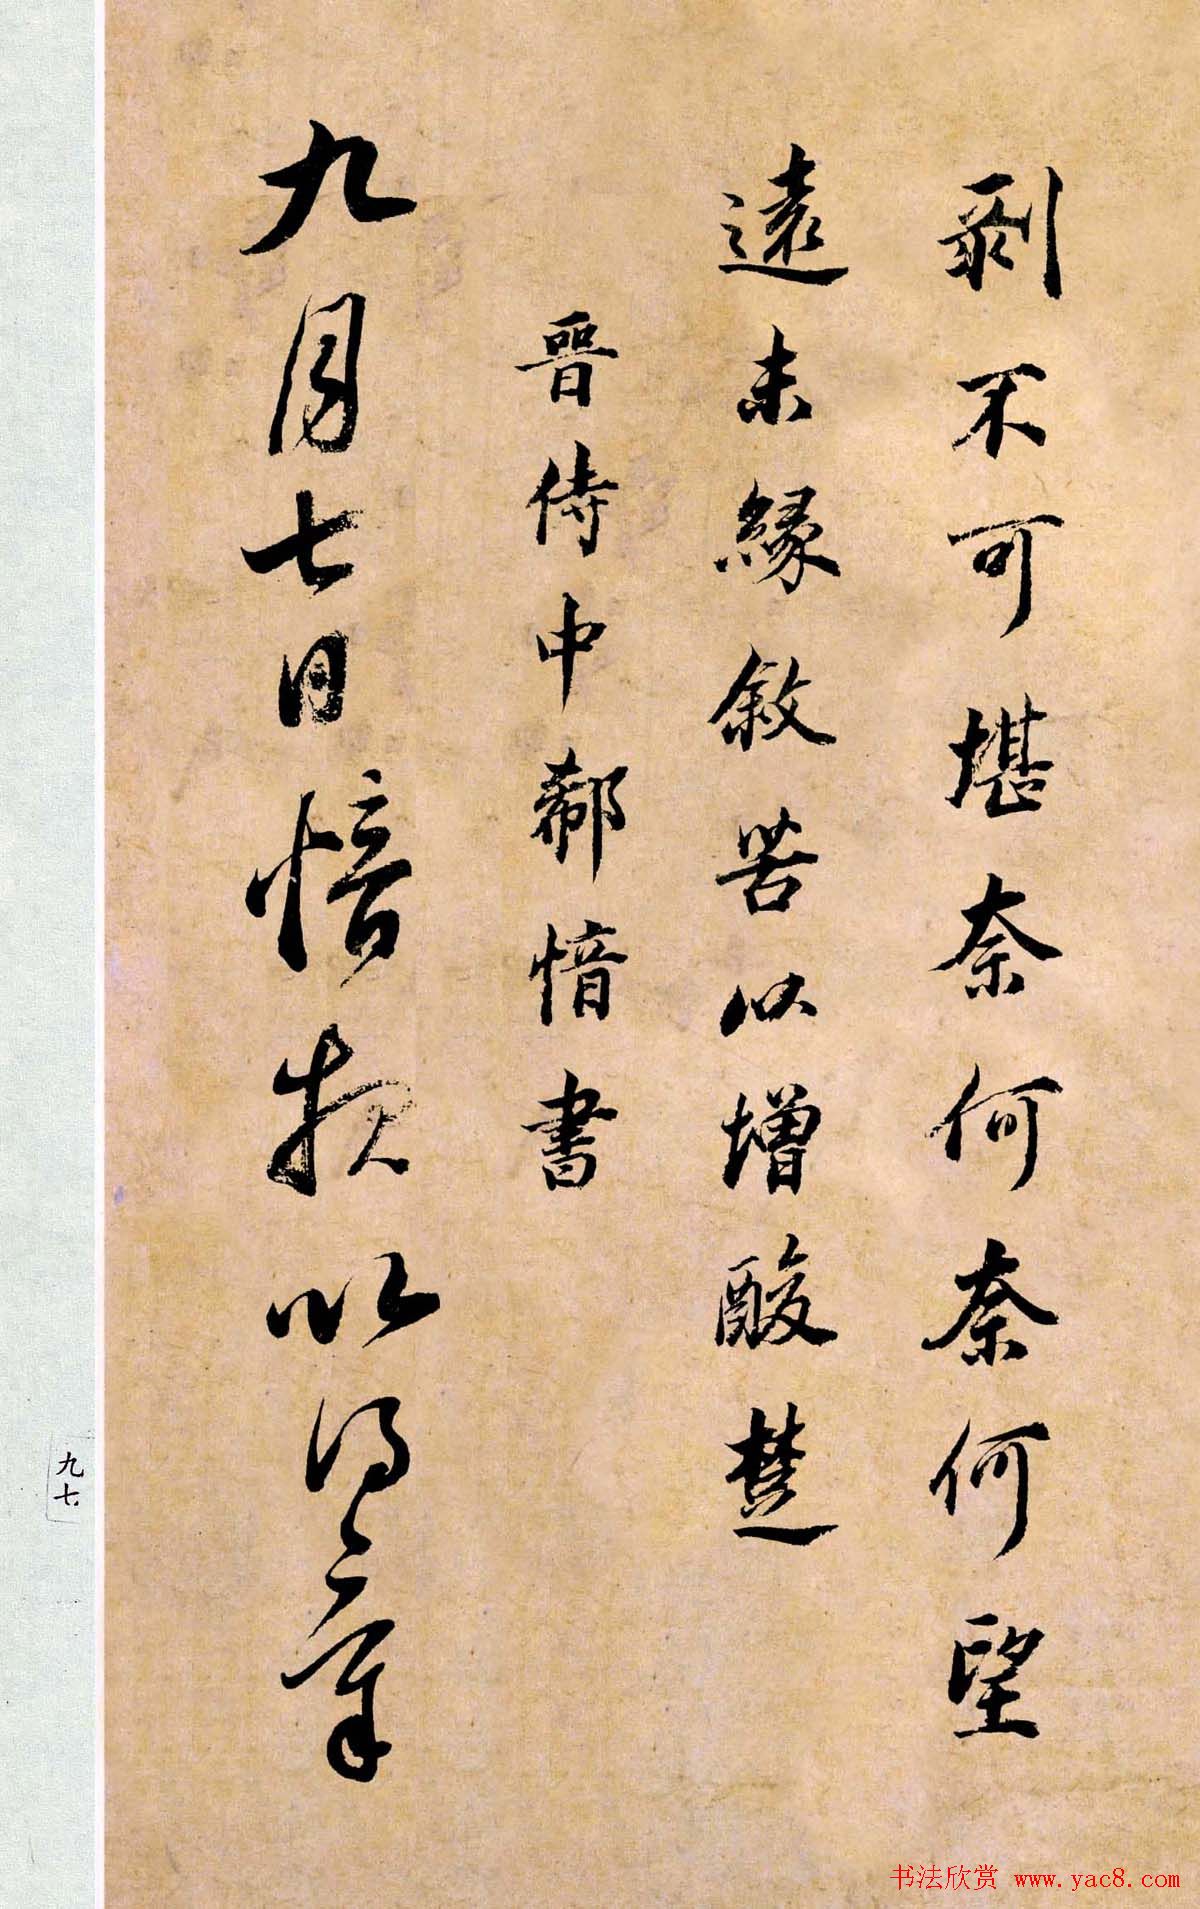 剝不可堪奈何奈何望
遠未緣敘苦以增酸楚
晉侍中郗愔書
九月七日愔報比得章
九七
书法欣赏 www.yac8.com